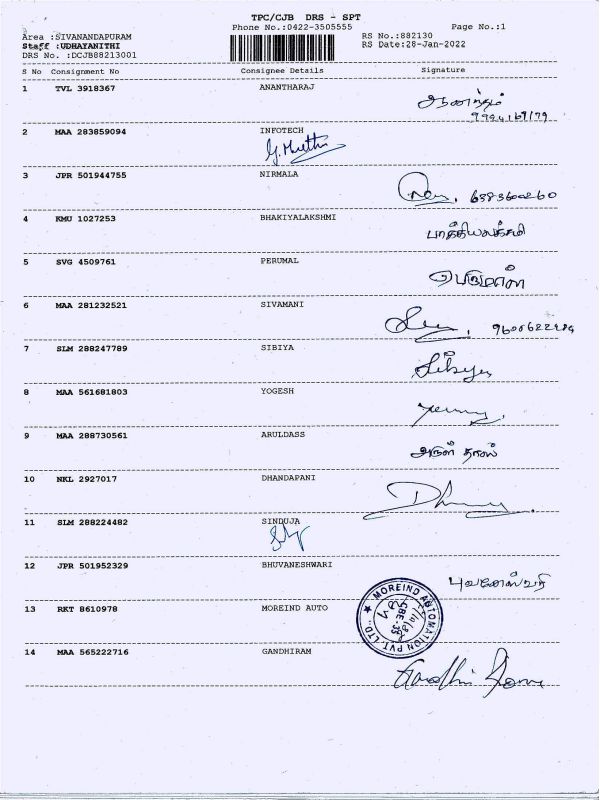 TPC/CJB DRS - SPT
Phone No.:0422-3505555 Page No.:1
Area :SIVANANDAPURAM RS No.:882130
Staff :UDHAYANITHI RS Date:28-Jan-2022
DRS No. :DCJB88213001
S No Consignment No Consignee Details Signature
1 TVL 3918367 ANANTHARAJ
ஆனந்தம்
2 MAA 283859094 INFOTECH
3 JPR 501944755 NIRMALA
4 KMU 1027253 BHAKIYALAKSHMI
பாக்கியலக்சுமி
5 SVG 4509761 PERUMAL
பெருமாள்
6 MAA 281232521 SIVAMANI
7 SLM 288247789 SIBIYA
Sibiya
8 MAA 561681803 YOGESH
9 MAA 288730561 ARULDASS
அருள் தாஸ்
10 NKL 2927017 DHANDAPANI
11 SLM 288224482 SINDUJA
12 JPR 501952329 BHUVANESHWARI
புவனேஸ்வரி
13 RKT 8610978 MOREIND AUTO
★ MOREIND AUTOMATION PVT. LTD.,
CBE-35
14 MAA 565222716 GANDHIRAM
Gandhi Ram